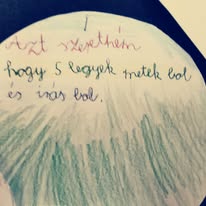 Azt szeretném
hogy 5 legyek matek ból
és írás ból.